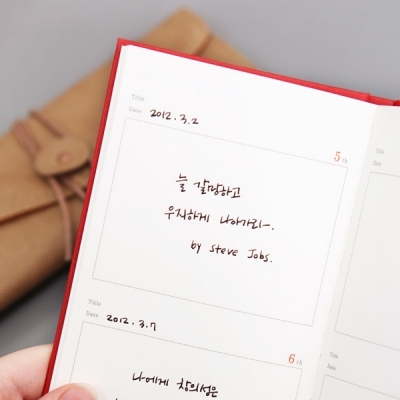 Title
Date 2012.3.2
5th
늘 갈망하고
우직하게 나아가라.
by Steve Jobs.
Title
Date 2012.3.7
6th
나에게 창의성은
Title
Date
Title
Date